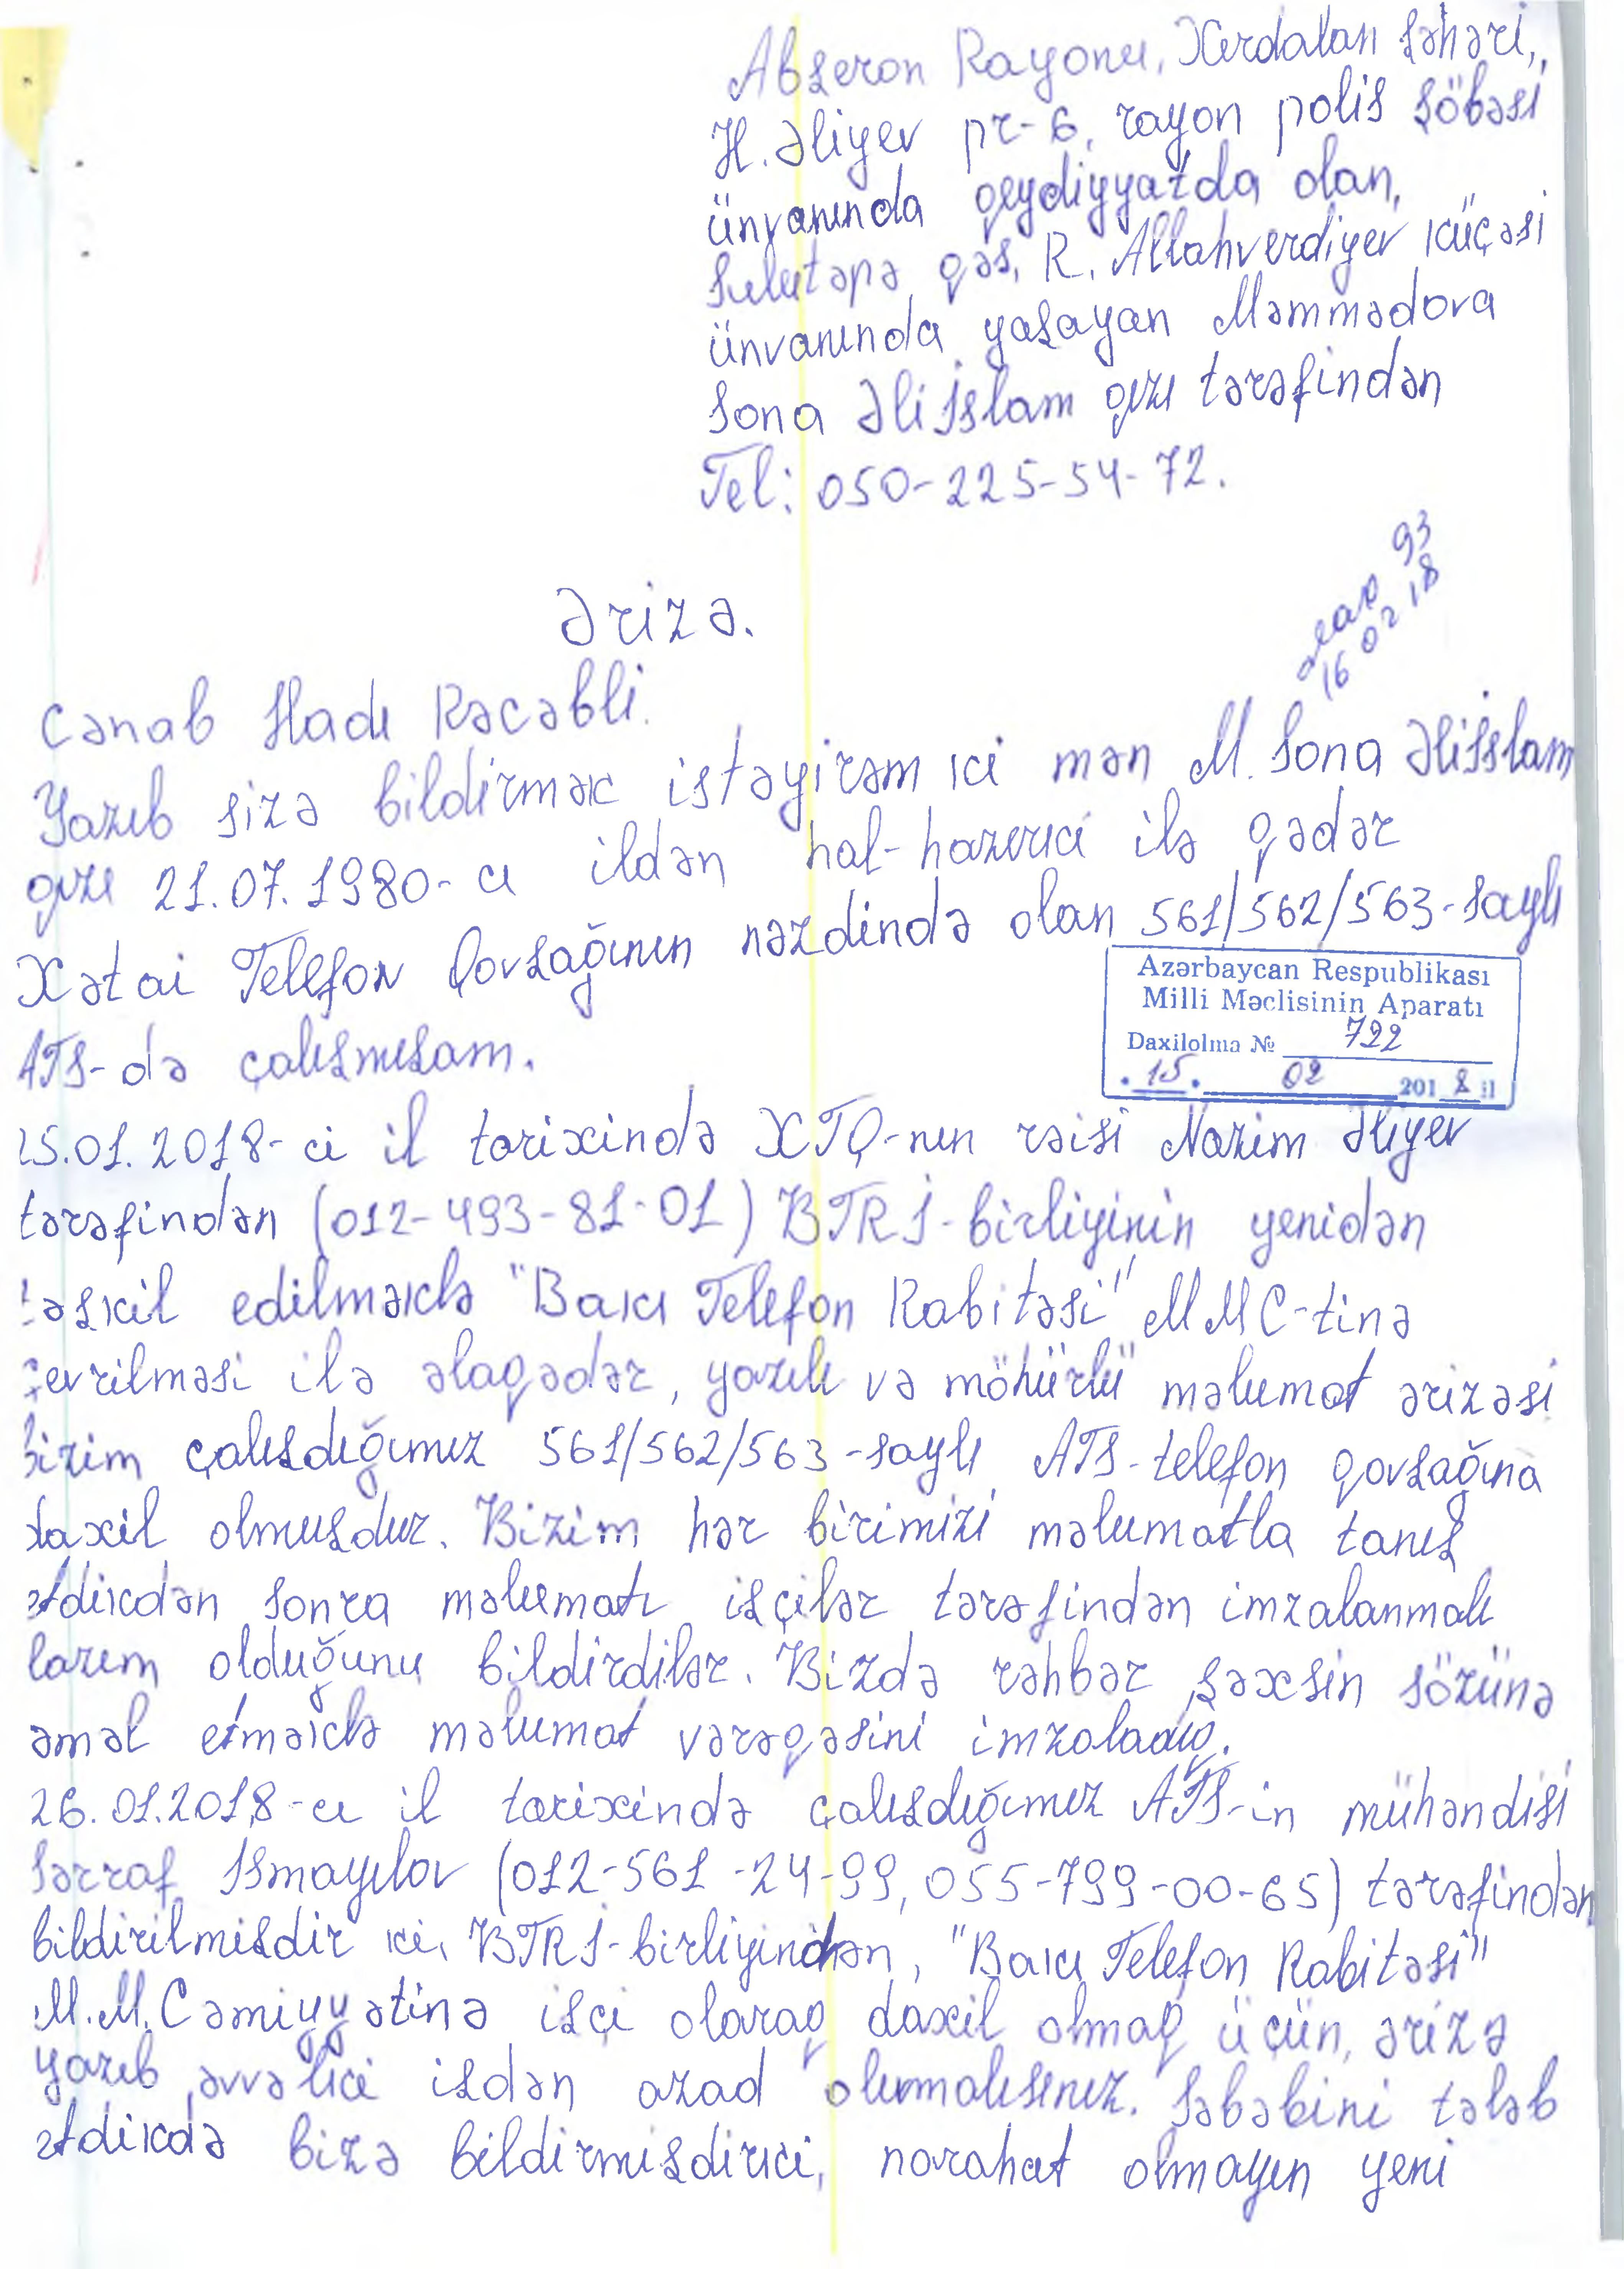 Abşeron Rayonu, Xırdalan şəhəri,
H. Əliyev pr-6, rayon polis şöbəsi
ünvanında qeydiyyatda olan,
Sulutəpə qəs, R. Allahverdiyev küçəsi
ünvanında yaşayan Məmmədova
Sona Əliİslam qızı tərəfindən
Tel: 050-225-54-72.
93
16 02 18
Ərizə.
Cənab Hadı Rəcəbli.
Yazıb sizə bildirmək istəyirəm ki mən M. Sona Əliİslam
qızı 21.07.1980-cı ildən hal-hazırki ilə qədər
Xətai Telefon Qovşağının nəzdində olan 561/562/563-saylı
ATS-də çalışmışam.
Azərbaycan Respublikası
Milli Məclisinin Aparatı
Daxilolma № 722
15. 02 2018 il
15.01.2018-ci il tarixində XTQ-nın rəisi Nazim Əliyev
tərəfindən (012-493-81-01) BTRİ-birliyinin yenidən
təşkil edilməklə "Bakı Telefon Rabitəsi" MMC-tinə
çevrilməsi ilə əlaqədər, yazılı və möhürlü məlumat ərizəsi
bizim çalışdığımız 561/562/563-saylı ATS-telefon qovşağına
daxil olmuşdur. Bizim hər birimizi məlumatla tanış
etdikdən sonra məlumatı işçilər tərəfindən imzalanmalı
lazım olduğunu bildirdilər. Bizdə rəhbər şəxsin sözünə
əməl etməklə məlumat vərəqəsini imzaladıq.
26.01.2018-cı il tarixində çalışdığımız ATS-in mühəndisi
Sərraf Ismayılov (012-561-24-99, 055-799-00-65) tərəfindən
bildirilmişdir ki, BTRİ-birliyindən, "Bakı Telefon Rabitəsi"
M.M.Cəmiyyətinə işçi olaraq daxil olmaq üçün, ərizə
yazıb əvvəlki işdən azad olunmalısınız. Səbəbini tələb
etdikdə bizə bildirmişdirki, narahat olmayın yeni